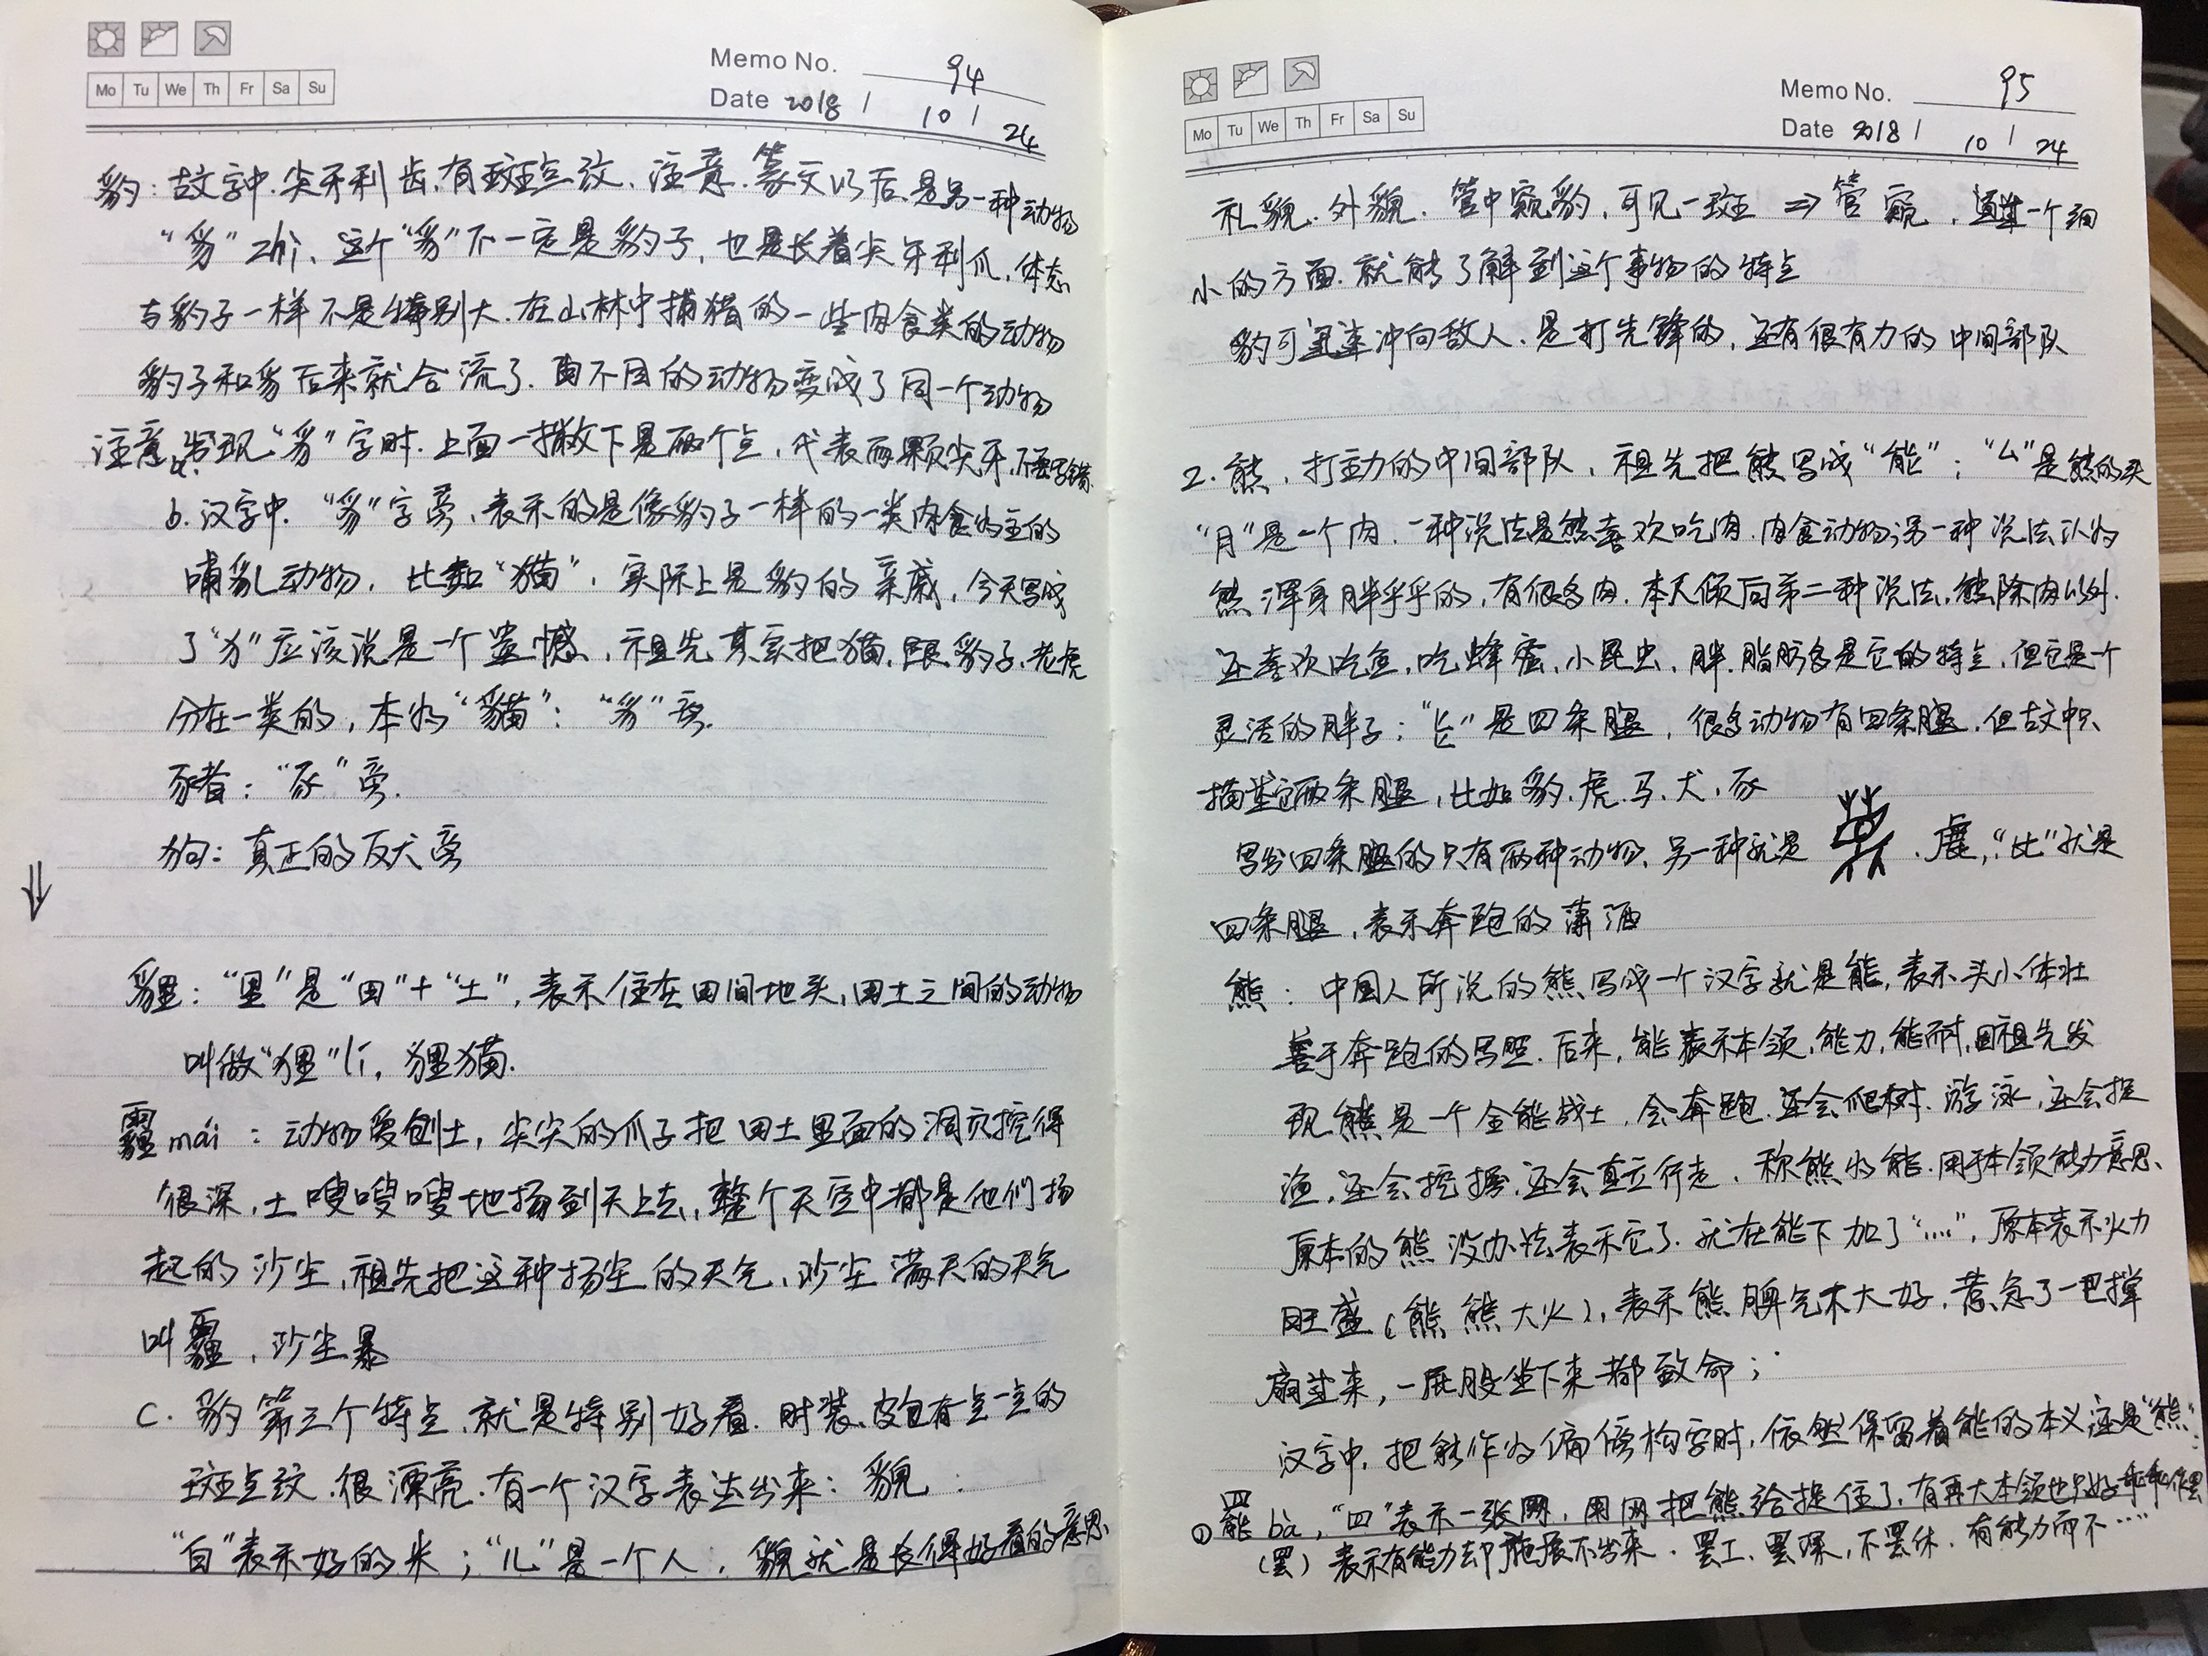 Memo No. 94
Mo Tu We Th Fr Sa Su
Date 2018 / 10 / 24
豹：古文字中.尖牙利齿,有斑点纹、注意.篆文以后.是另一种动物
“豸”zhì、这个“豸”不一定是豹子,也是长着尖牙利爪.体态
与豹子一样不是特别大.在山林中捕猎的一些肉食类的动物
豹子和豸后来就合流了.两不同的动物变成了同一个动物
注意,出现“豸”字时.上面一撇下是两个点,代表两颗尖牙,不要写错
b.汉字中.“豸”字旁、表示的是像豹子一样的一类肉食为主的
哺乳动物,比如“猫”,实际上是豹的亲戚,今天写成
了“犭”应该说是一个遗憾,祖先其实把猫.跟豹子、老虎
分在一类的,本为“貓”：“豸”旁.
豬：“豕”旁.
狗：真正的反犬旁
貍：“里”是“田”+“土”,表示住在田间地头,田土之间的动物
叫做“狸”lí,狸猫.
霾mái：动物爱刨土,尖尖的爪子把田土里面的洞穴挖得
很深,土嗖嗖嗖地扬到天上去,整个天空中都是他们扬
起的沙尘,祖先把这种扬尘的天气,沙尘满天的天气
叫霾,沙尘暴
c.豹第三个特点,就是特别好看.时装、皮包有点一点的
斑点纹.很漂亮.有一个汉字表达出来：貌
“白”表示好的米；“儿”是一个人,貌就是长得好看的意思
Memo No. 95
Mo Tu We Th Fr Sa Su
Date 2018 / 10 / 24
礼貌.外貌.管中窥豹,可见一斑⇒管窥,通过一个细
小的方面.就能了解到这个事物的特点
豹可迅速冲向敌人.是打先锋的,还有很有力的中间部队
2.熊,打主力的中间部队,祖先把熊写成“能”；“厶”是熊的头
“月”是一个肉.一种说法是熊喜欢吃肉.肉食动物；另一种说法认为
熊浑身胖乎乎的,有很多肉.本人倾向第二种说法,熊除肉以外.
还喜欢吃鱼,吃蜂蜜,小昆虫,胖.脂肪多是它的特点,但它是个
灵活的胖子；“㠯”是四条腿,很多动物有四条腿.但古文中只
描述它两条腿,比如豹.虎.马.犬.豕
写出四条腿的只有两种动物、另一种就是 、鹿,“比”就是
四条腿,表示奔跑的潇洒
熊：中国人所说的熊写成一个汉字就是能,表示头小体壮
善于奔跑的写照.后来,能表示本领,能力,能耐,因祖先发
现熊是一个全能战士,会奔跑.还会爬树.游泳,还会捉
渔,还会挖掘.还会直立行走、称熊为能.用于本领能力意思、
原本的熊没办法表示它了.就在能下加了“灬”,原本表示火力
旺盛(熊熊大火),表示熊脾气不大好.惹急了一把掌
扇过来,一屁股坐下来都致命；
汉字中.把能作为偏傍构字时,依然保留着能的本义还是“熊”
①罷bà,“四”表示一张网,用网把熊给捉住了,有再大本领也只好乖乖作罢
(罢)表示有能力却施展不出来.罢工、罢课,不罢休.有能力而不……